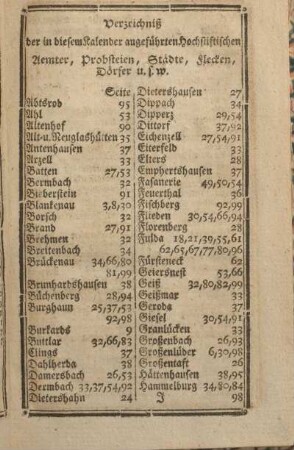 Verzeichniß
der in diesem Kalender angeführten Hochstiftischen
Aemter, Probsteien, Städte, Flecken,
Dörfer u. s. w.
Seite
Abtsrod 95
Ahl 53
Altenhof 90
Alt- u. Neuglashütten 35
Antenhausen 37
Arzell 33
Batten 27,53
Bermbach 32
Bieberstein 91
Blankenau 3,8,30
Borsch 32
Brand 27,91
Brehmen 32
Breitenbach 34
Brückenau 34,66,80
81,99
Brunhardshausen 38
Büchenberg 28,94
Burghaun 25,37,53
92,98
Burkards 9
Buttlar 32,66,83
Clings 37
Dahlherda 38
Damersbach 26,53
Dermbach 33,37,54,92
Dietershahn 24
Dietershausen 27
Dippach 34
Dipperz 29,54
Dittorf 37,92
Eichenzell 27,54,91
Eiterfeld 33
Elters 28
Emphertshausen 37
Fasanerie 49,50,54
Feuerthal 36
Fischberg 92,99
Flieden 30,54,66,94
Florenberg 28
Fulda 18,21,39,55,61
62,65,67,77,80,96
Fürsteneck 62
Geiersnest 53,66
Geiß 32,80,82,99
Geißmar 33
Geroda 37
Giesel 30,54,91
Granlücken 33
Großenbach 26,93
Großenlüder 6,30,98
Großentaft 26
Hättenhausen 38,95
Hammelburg 34,80,84
J 98